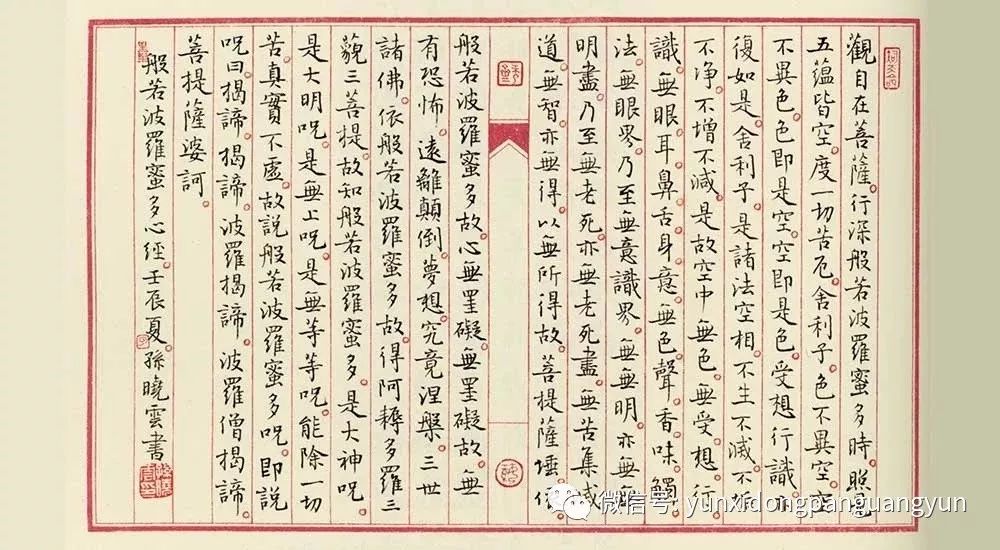 觀自在菩薩行深般若波羅蜜多時照見
五蘊皆空度一切苦厄舍利子色不異空空
不異色色即是空空即是色受想行識亦
復如是舍利子是諸法空相不生不滅不垢
不净不增不減是故空中無色無受想行
識無眼耳鼻舌身意無色聲香味觸
法無眼界乃至無意識界無無明亦無無
明盡乃至無老死亦無老死盡無苦集滅
道無智亦無得以無所得故菩提薩埵依
般若波羅蜜多故心無罣礙無罣礙故無
有恐怖遠離顛倒夢想究竟涅槃三世
諸佛依般若波羅蜜多故得阿耨多羅三
藐三菩提故知般若波羅蜜多是大神呪
是大明呪是無上呪是無等等呪能除一切
苦真實不虛故說般若波羅蜜多呪即說
呪曰揭諦揭諦波羅揭諦波羅僧揭諦
菩提薩婆訶
般若波羅蜜多心經壬辰夏孫曉雲書
微信号: yunxidongpanguangyun